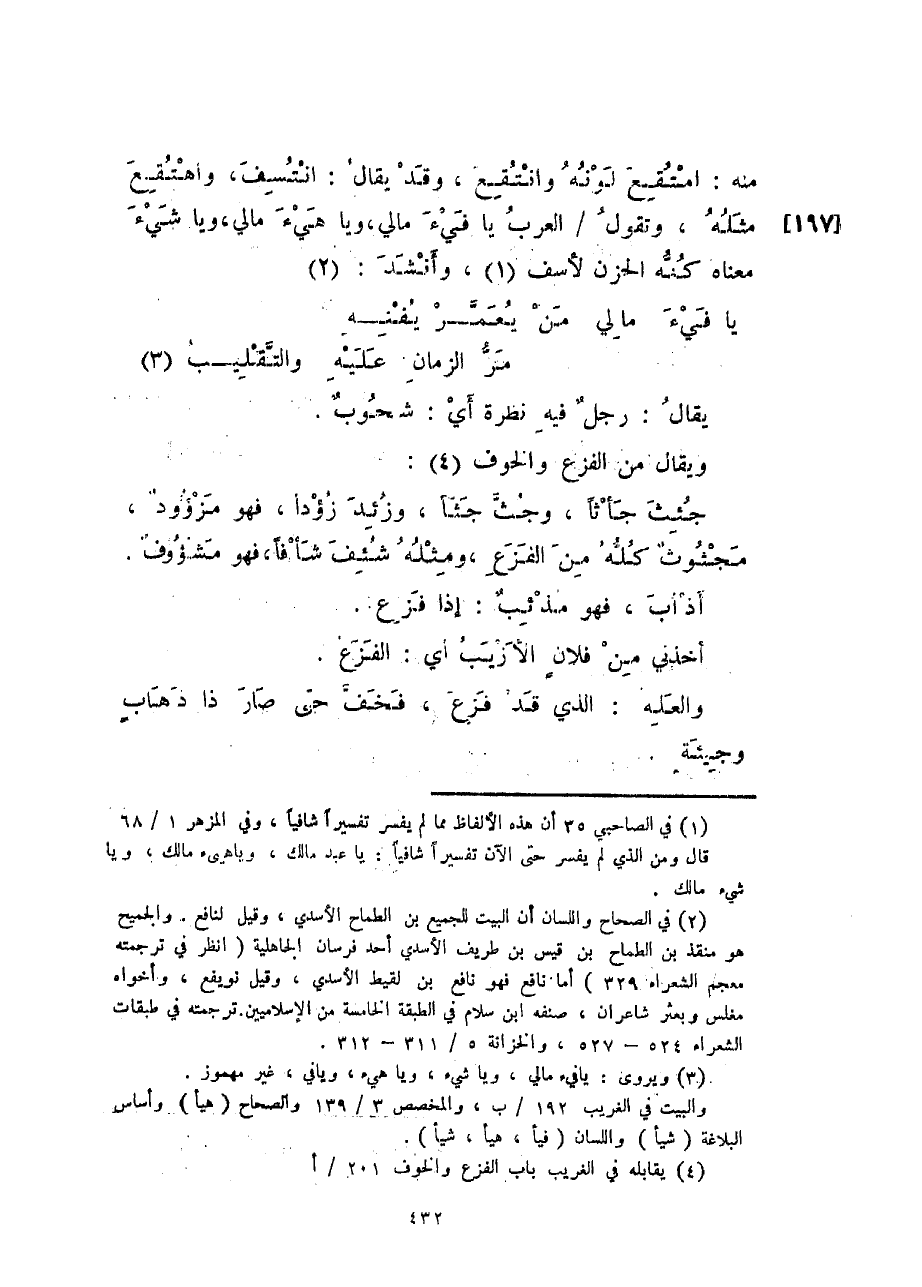 منه : امْتُقِعَ لَوْنُهُ وانْتُقِعَ ، وقَدْ يقالُ : انْتُسِفَ، واهْتُقِعَ
[١٩٧] مثلُهُ ، وتقولُ / العربُ يا فَيْءَ مالي،ويا هَيْءَ مالي،ويا شَيْءَ
معناه كُلُّه الحزن لأسف (١) ، وأَنْشَدَ : (٢)
يا فَيْءَ مالِي مَنْ يُعَمَّـرْ يُفْنِـهِ
مَرُّ الزمانِ عَلَيْهِ والتَّقْلِيبُ (٣)
يقالُ : رجلٌ فيهِ نظرة أَيْ : شحُوبٌ .
ويقال من الفزع والخوف (٤) :
جُئِثَ جَأْثاً ، وجُثَّ جَثّاً ، وزُئِدَ زُؤْداً ، فهو مَزْؤُودٌ ،
مَجْثُوثٌ كُلُّهُ مِنَ الفَزَعِ ،ومِثْلُهُ شُئِفَ شَأْفاً،فهو مَشؤُوفٌ .
أَذْأبَ ، فهو مذْئِبٌ : إذا فَزِع .
أخذني مِنْ فلانٍ الأَزْيَبُ أي : الفَزَعُ .
والعَلِهُ : الذي قَدْ فَزِعَ ، فَخَفَّ حتى صَارَ ذا ذَهَابٍ
وجِيئَةٍ .
(١) في الصاحبي ٣٥ أن هذه الألفاظ مما لم يفسر تفسيراً شافياً ، وفي المزهر ١ / ٦٨
قال ومن الذي لم يفسر حتى الآن تفسيراً شافياً : يا عبد مالك ، وياهيء مالك ، ويا
شيء مالك .
(٢) في الصحاح واللسان أن البيت للجميع بن الطماح الأسدي ، وقيل لنافع . والجميح
هو منقذ بن الطماح بن قيس بن طريف الأسدي أحد فرسان الجاهلية ( انظر في ترجمته
معجم الشعراء ٣٢٩ ) أما نافع فهو نافع بن لقيط الأسدي ، وقيل نويفع ، وأخواه
مغلس وبعثر شاعران ، صنفه ابن سلام في الطبقة الخامسة من الإسلاميين.ترجمته في طبقات
الشعراء ٥٢٤ – ٥٢٧ ، والخزانة ٥ / ٣١١ – ٣١٢ .
(٣) ويروى : يافيء مالي ، ويا شيء ، ويا هيء ، ويافي ، غير مهموز .
والبيت في الغريب ١٩٢ / ب ، والمخصص ٣ / ١٣٩ والصحاح ( هيأ ) وأساس
البلاغة ( شيأ ) واللسان ( فيأ ، هيأ ، شيأ ) .
(٤) يقابله في الغريب باب الفزع والخوف ٢٠١ / أ
٤٣٢